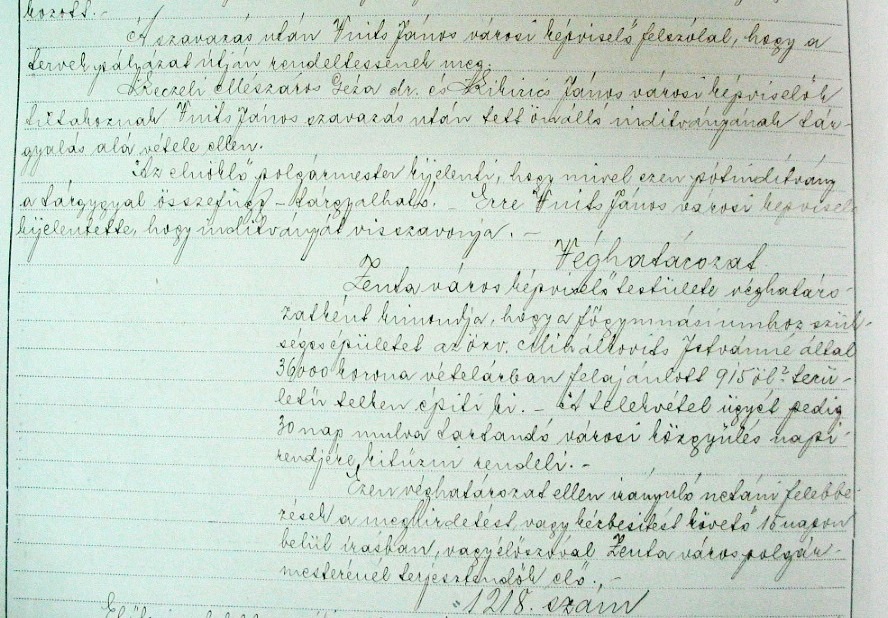 hozott.-
A szavazás után Vuits János városi képviselő felszólal, hogy a
tervek pályázat útján rendeltessenek meg.
Keczeli Mészáros Géza dr. és Kikirics János városi képviselők
tiltakoznak Vuits János szavazás után tett önálló indítványának tár-
gyalás alá vétele ellen.
Az elnöklő polgármester kijelenti, hogy mivel ezen pótindítvány
a tárgygyal összefügg - tárgyalható. - Erre Vuits János városi képviselő
kijelentette, hogy indítványát visszavonja. -
Véghatározat
Zenta város képviselő testülete véghatáro-
zatként kimondja, hogy a főgymnásiumhoz szük-
séges épületet az özv. Mihálkovits Istvánné által
36000 korona vételárban felajánlott 915 öl² terü-
letű telken építi ki. - A telekvétel ügyét pedig
30 nap mulva tartandó városi közgyülés napi-
rendjére kitűzni rendeli. -
Ezen véghatározat ellen irányuló netáni felebbe-
zések a meghirdetést, vagy kézbesítést követő 15 napon
belül irásban, vagy élőszóval Zenta város polgár-
mesterénél terjesztendők elő. -
1218. szám